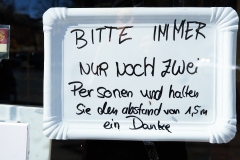 BITTE IMMER
NUR NOCH ZWEI
Personen und halten
Sie den abstand von 1,5m
ein Danke